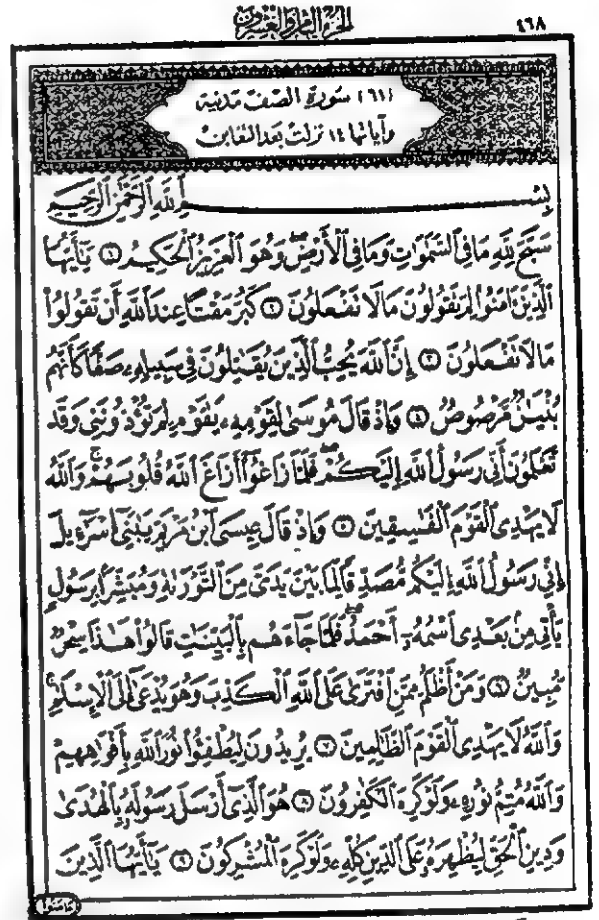 الجزء الثامن والعشرون ٤٦٨
(٦١) سورة الصف مدنية
وآياتها ١٤ نزلت بعد التغابن
بِسْمِ اللَّهِ الرَّحْمَٰنِ الرَّحِيمِ
سَبَّحَ لِلَّهِ مَا فِي السَّمَٰوَٰتِ وَمَا فِي الْأَرْضِ ۖ وَهُوَ الْعَزِيزُ الْحَكِيمُ ١ يَٰٓأَيُّهَا
الَّذِينَ ءَامَنُوا لِمَ تَقُولُونَ مَا لَا تَفْعَلُونَ ٢ كَبُرَ مَقْتًا عِندَ اللَّهِ أَن تَقُولُوا
مَا لَا تَفْعَلُونَ ٣ إِنَّ اللَّهَ يُحِبُّ الَّذِينَ يُقَٰتِلُونَ فِي سَبِيلِهِ صَفًّا كَأَنَّهُم
بُنْيَٰنٌ مَّرْصُوصٌ ٤ وَإِذْ قَالَ مُوسَىٰ لِقَوْمِهِ يَٰقَوْمِ لِمَ تُؤْذُونَنِي وَقَد
تَّعْلَمُونَ أَنِّي رَسُولُ اللَّهِ إِلَيْكُمْ ۖ فَلَمَّا زَاغُوٓا أَزَاغَ اللَّهُ قُلُوبَهُمْ ۚ وَاللَّهُ
لَا يَهْدِي الْقَوْمَ الْفَٰسِقِينَ ٥ وَإِذْ قَالَ عِيسَى ابْنُ مَرْيَمَ يَٰبَنِيٓ إِسْرَٰٓءِيلَ
إِنِّي رَسُولُ اللَّهِ إِلَيْكُم مُّصَدِّقًا لِّمَا بَيْنَ يَدَيَّ مِنَ التَّوْرَىٰةِ وَمُبَشِّرًا بِرَسُولٍ
يَأْتِي مِنۢ بَعْدِي اسْمُهُۥٓ أَحْمَدُ ۖ فَلَمَّا جَآءَهُم بِالْبَيِّنَٰتِ قَالُوا هَٰذَا سِحْرٌ
مُّبِينٌ ٦ وَمَنْ أَظْلَمُ مِمَّنِ افْتَرَىٰ عَلَى اللَّهِ الْكَذِبَ وَهُوَ يُدْعَىٰٓ إِلَى الْإِسْلَٰمِ ۚ
وَاللَّهُ لَا يَهْدِي الْقَوْمَ الظَّٰلِمِينَ ٧ يُرِيدُونَ لِيُطْفِـُٔوا نُورَ اللَّهِ بِأَفْوَٰهِهِمْ
وَاللَّهُ مُتِمُّ نُورِهِ وَلَوْ كَرِهَ الْكَٰفِرُونَ ٨ هُوَ الَّذِيٓ أَرْسَلَ رَسُولَهُ بِالْهُدَىٰ
وَدِينِ الْحَقِّ لِيُظْهِرَهُ عَلَى الدِّينِ كُلِّهِ وَلَوْ كَرِهَ الْمُشْرِكُونَ ٩ يَٰٓأَيُّهَا الَّذِينَ